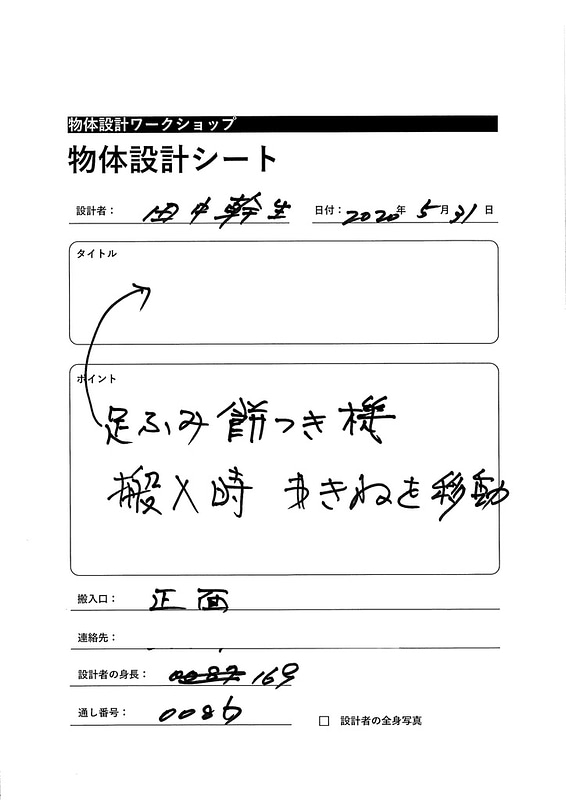 物体設計ワークショップ
物体設計シート
設計者： 田中幹生 日付： 2020年 5月31日
タイトル
ポイント
足ふみ餅つき機
搬入時 きねを移動
搬入口： 正面
連絡先：
設計者の身長： 169
通し番号： 0086
設計者の全身写真